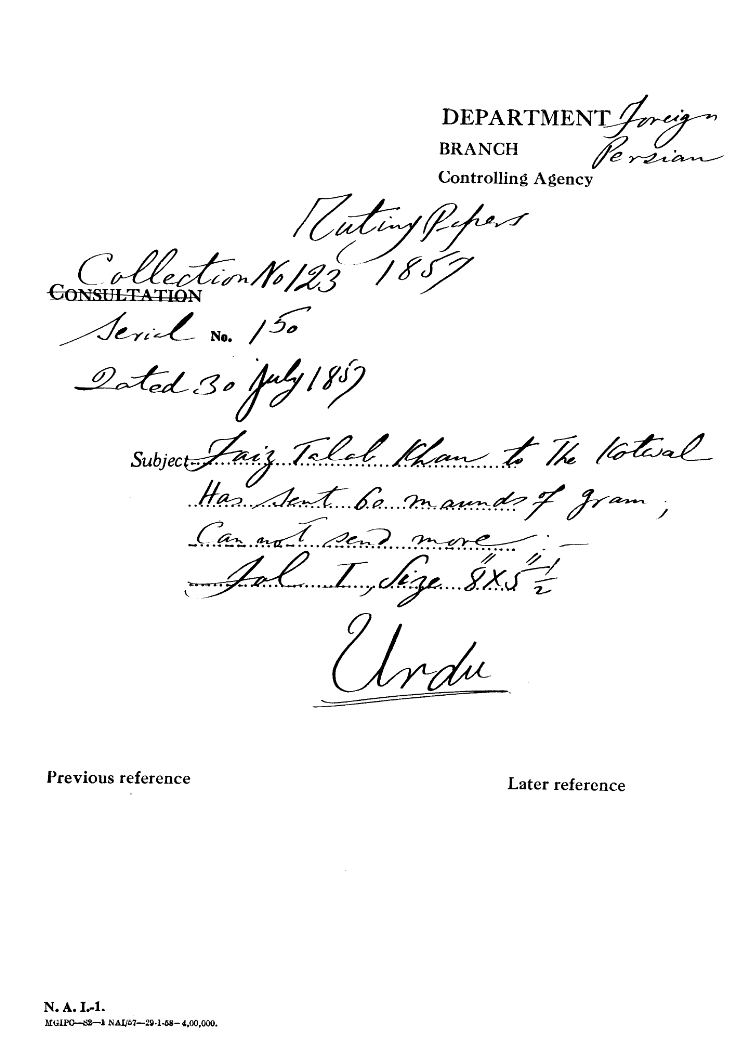 DEPARTMENT Foreign
BRANCH Persian
Controlling Agency
Mutiny Papers
Collection No 123 1857
CONSULTATION
Serial No. 150
Dated 30 July 1857
Subject Faiz Talab Khan to The Kotwal
Has sent 60 maunds of gram ;
Can not send more :—
Fol I, Size 8"X5"½
Urdu
Previous reference
Later reference
N. A. I.-1.
MGIPC—S2—1 NAI/57—29-1-58—4,00,000.